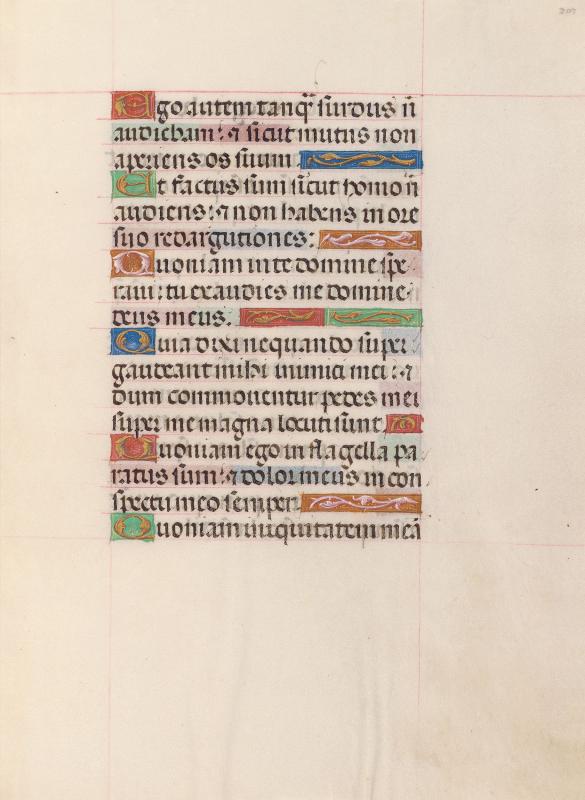 Ego autem tanq̃ surdus ñ
audiebam: ⁊ sicut mutus non
aperiens os suum.
Et factus sum sicut homo ñ
audiens: ⁊ non habens in ore
suo redargutiones:
Quoniam in te domine spe
raui: tu exaudies me domine
deus meus.
Quia dixi nequando super
gaudeant mihi inimici mei: ⁊
dum commouentur pedes mei
super me magna locuti sunt
Quoniam ego in flagella pa
ratus sum: ⁊ dolor meus in con
spectu meo semper.
Quoniam iniquitatem meã